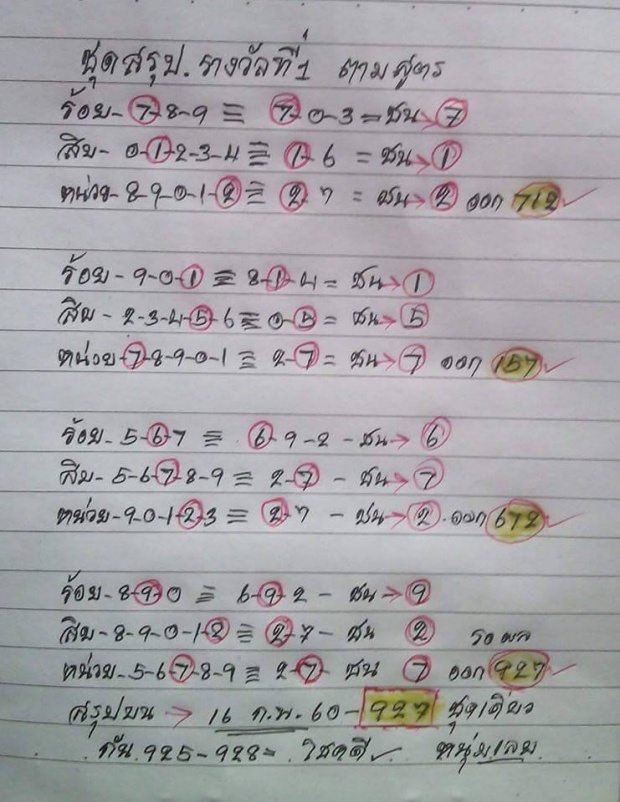 ชุดสรุป. รางวัลที่ 1 ตามสูตร
ร้อย-7-8-9 ≡ 7-0-3 = ชน→7
สิบ- 0-1-2-3-4 ≡ 1-6 = ชน→1
หน่วย-8-9-0-1-2 ≡ 2-7 = ชน→2 ออก 712 ✓
ร้อย-9-0-1 ≡ 8-1-4 = ชน→1
สิบ-2-3-4-5-6 ≡ 0-5 = ชน→5
หน่วย-7-8-9-0-1 ≡ 2-7 = ชน→7 ออก 157 ✓
ร้อย-5-6-7 ≡ 6-9-2 - ชน→6
สิบ-5-6-7-8-9 ≡ 2-7 - ชน→7
หน่วย-9-0-1-2-3 ≡ 2-7 - ชน→2. ออก 672 ✓
ร้อย-8-9-0 ≡ 6-9-2 - ชน→9
สิบ-8-9-0-1-2 ≡ 2-7- ชน 2 รอผล
หน่วย-5-6-7-8-9 ≡ 2-7- ชน 7 ออก 927 ✓
สรุปบน → 16 ก.พ. 60-927 ชุดเดียว
กัน 925-928= โชคดี ✓ หนุ่มเลม